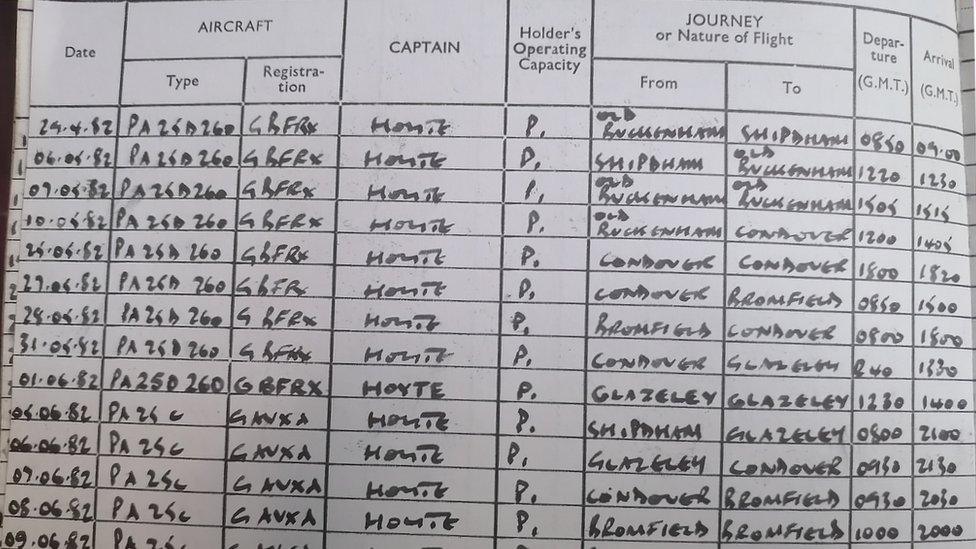 Date AIRCRAFT CAPTAIN Holder's Operating Capacity JOURNEY or Nature of Flight Depar- ture (G.M.T.) Arrival (G.M.T.)
Type Registra- tion From To
29.4.82 PA25D260 GBFRX HOYTE P. OLD BUCKENHAM SHIPDHAM 0850 0900
06.05.82 PA25D260 GBFRX HOYTE P. SHIPDHAM OLD BUCKENHAM 1220 1230
09.05.82 PA25D260 GBFRX HOYTE P. OLD BUCKENHAM OLD BUCKENHAM 1505 1515
10.05.82 PA25D260 GBFRX HOYTE P. OLD BUCKENHAM CONDOVER 1200 1405
25.05.82 PA25D 260 GBFRX HOYTE P. CONDOVER CONDOVER 1800 1820
27.05.82 PA25D 260 GBFRX HOYTE P. CONDOVER BROMFIELD 0850 1500
28.05.82 PA25D 260 GBFRX HOYTE P. BROMFIELD CONDOVER 0800 1800
31.05.82 PA25D260 GBFRX HOYTE P. CONDOVER GLAZELEY 1330
01.06.82 PA25D260 GBFRX HOYTE P. GLAZELEY GLAZELEY 1230 1400
05.06.82 PA25C GAVXA HOYTE P. SHIPDHAM GLAZELEY 0800 2100
06.06.82 PA25C GAVXA HOYTE P. GLAZELEY CONDOVER 0930 2130
07.06.82 PA25C GAVXA HOYTE P. CONDOVER BROMFIELD 0930 2030
08.06.82 PA25C GAVXA HOYTE P. BROMFIELD BROMFIELD 1000 2000
09.06.82 PA25C